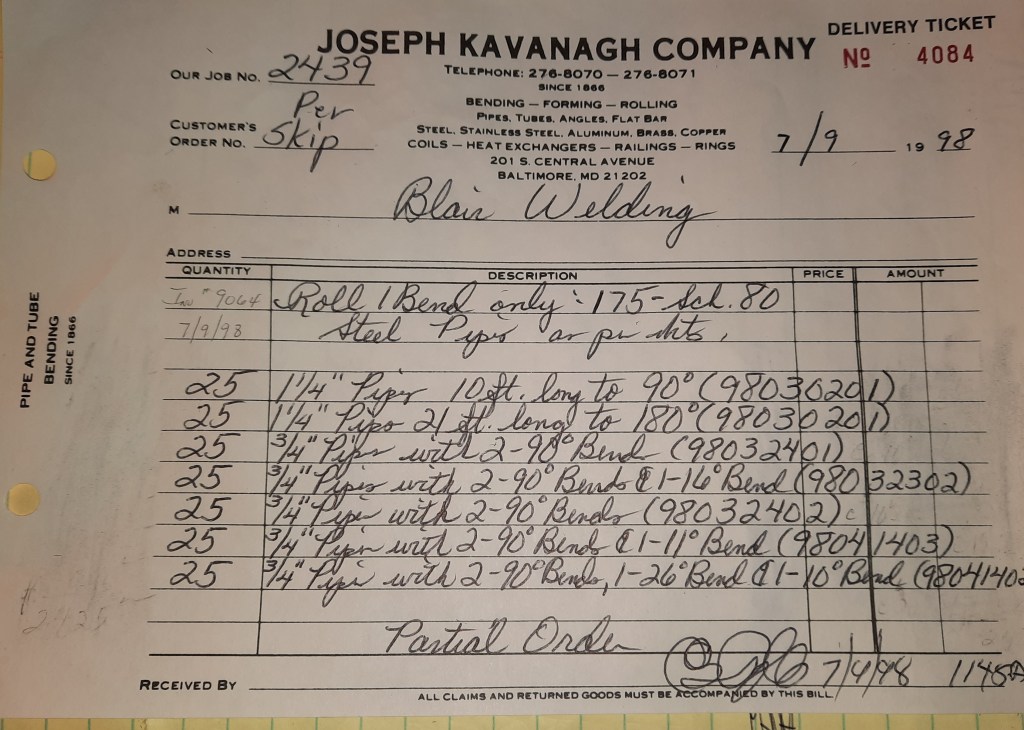 DELIVERY TICKET
JOSEPH KAVANAGH COMPANY
Nº 4084
OUR JOB NO. 2439
TELEPHONE: 276-8070 — 276-8071
SINCE 1866
Per
BENDING — FORMING — ROLLING
PIPES, TUBES, ANGLES, FLAT BAR
CUSTOMER'S ORDER NO. Skip
STEEL, STAINLESS STEEL, ALUMINUM, BRASS, COPPER
COILS — HEAT EXCHANGERS — RAILINGS — RINGS
7/9 19 98
201 S. CENTRAL AVENUE
BALTIMORE, MD 21202
M Blair Welding
ADDRESS
QUANTITY DESCRIPTION PRICE AMOUNT
Inv # 9064 Roll / Bend only :- 175 - Sch. 80
7/9/98 Steel Pipes as per skts.
25 1 1/4" Pipes 10 ft. long to 90° (98030201)
25 1 1/4" Pipes 21 ft. long to 180° (98030201)
25 3/4" Pipes with 2-90° Bends (98032401)
25 3/4" Pipes with 2-90° Bends & 1-16° Bend (98032302)
25 3/4" Pipes with 2-90° Bends (98032402)
25 3/4" Pipes with 2-90° Bends & 1-11° Bend (98041403)
25 3/4" Pipes with 2-90° Bends, 1-26° Bend & 1-10° Bend (9804140
Partial Order
7/9/98 1145A
RECEIVED BY
ALL CLAIMS AND RETURNED GOODS MUST BE ACCOMPANIED BY THIS BILL
PIPE AND TUBE
BENDING
SINCE 1866